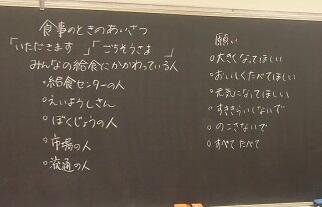 食事のときのあいさつ
「いただきます」「ごちそうさま」
みんなの給食にかかわっている人
○給食センターの人
○えいようしさん
○ぼくじょうの人
○市場の人
○流通の人
願い
○大きくなってほしい
○おいしくたべてほしい
○元気になってほしい
○すききらいしないで
○のこさないで
○すべてたべて